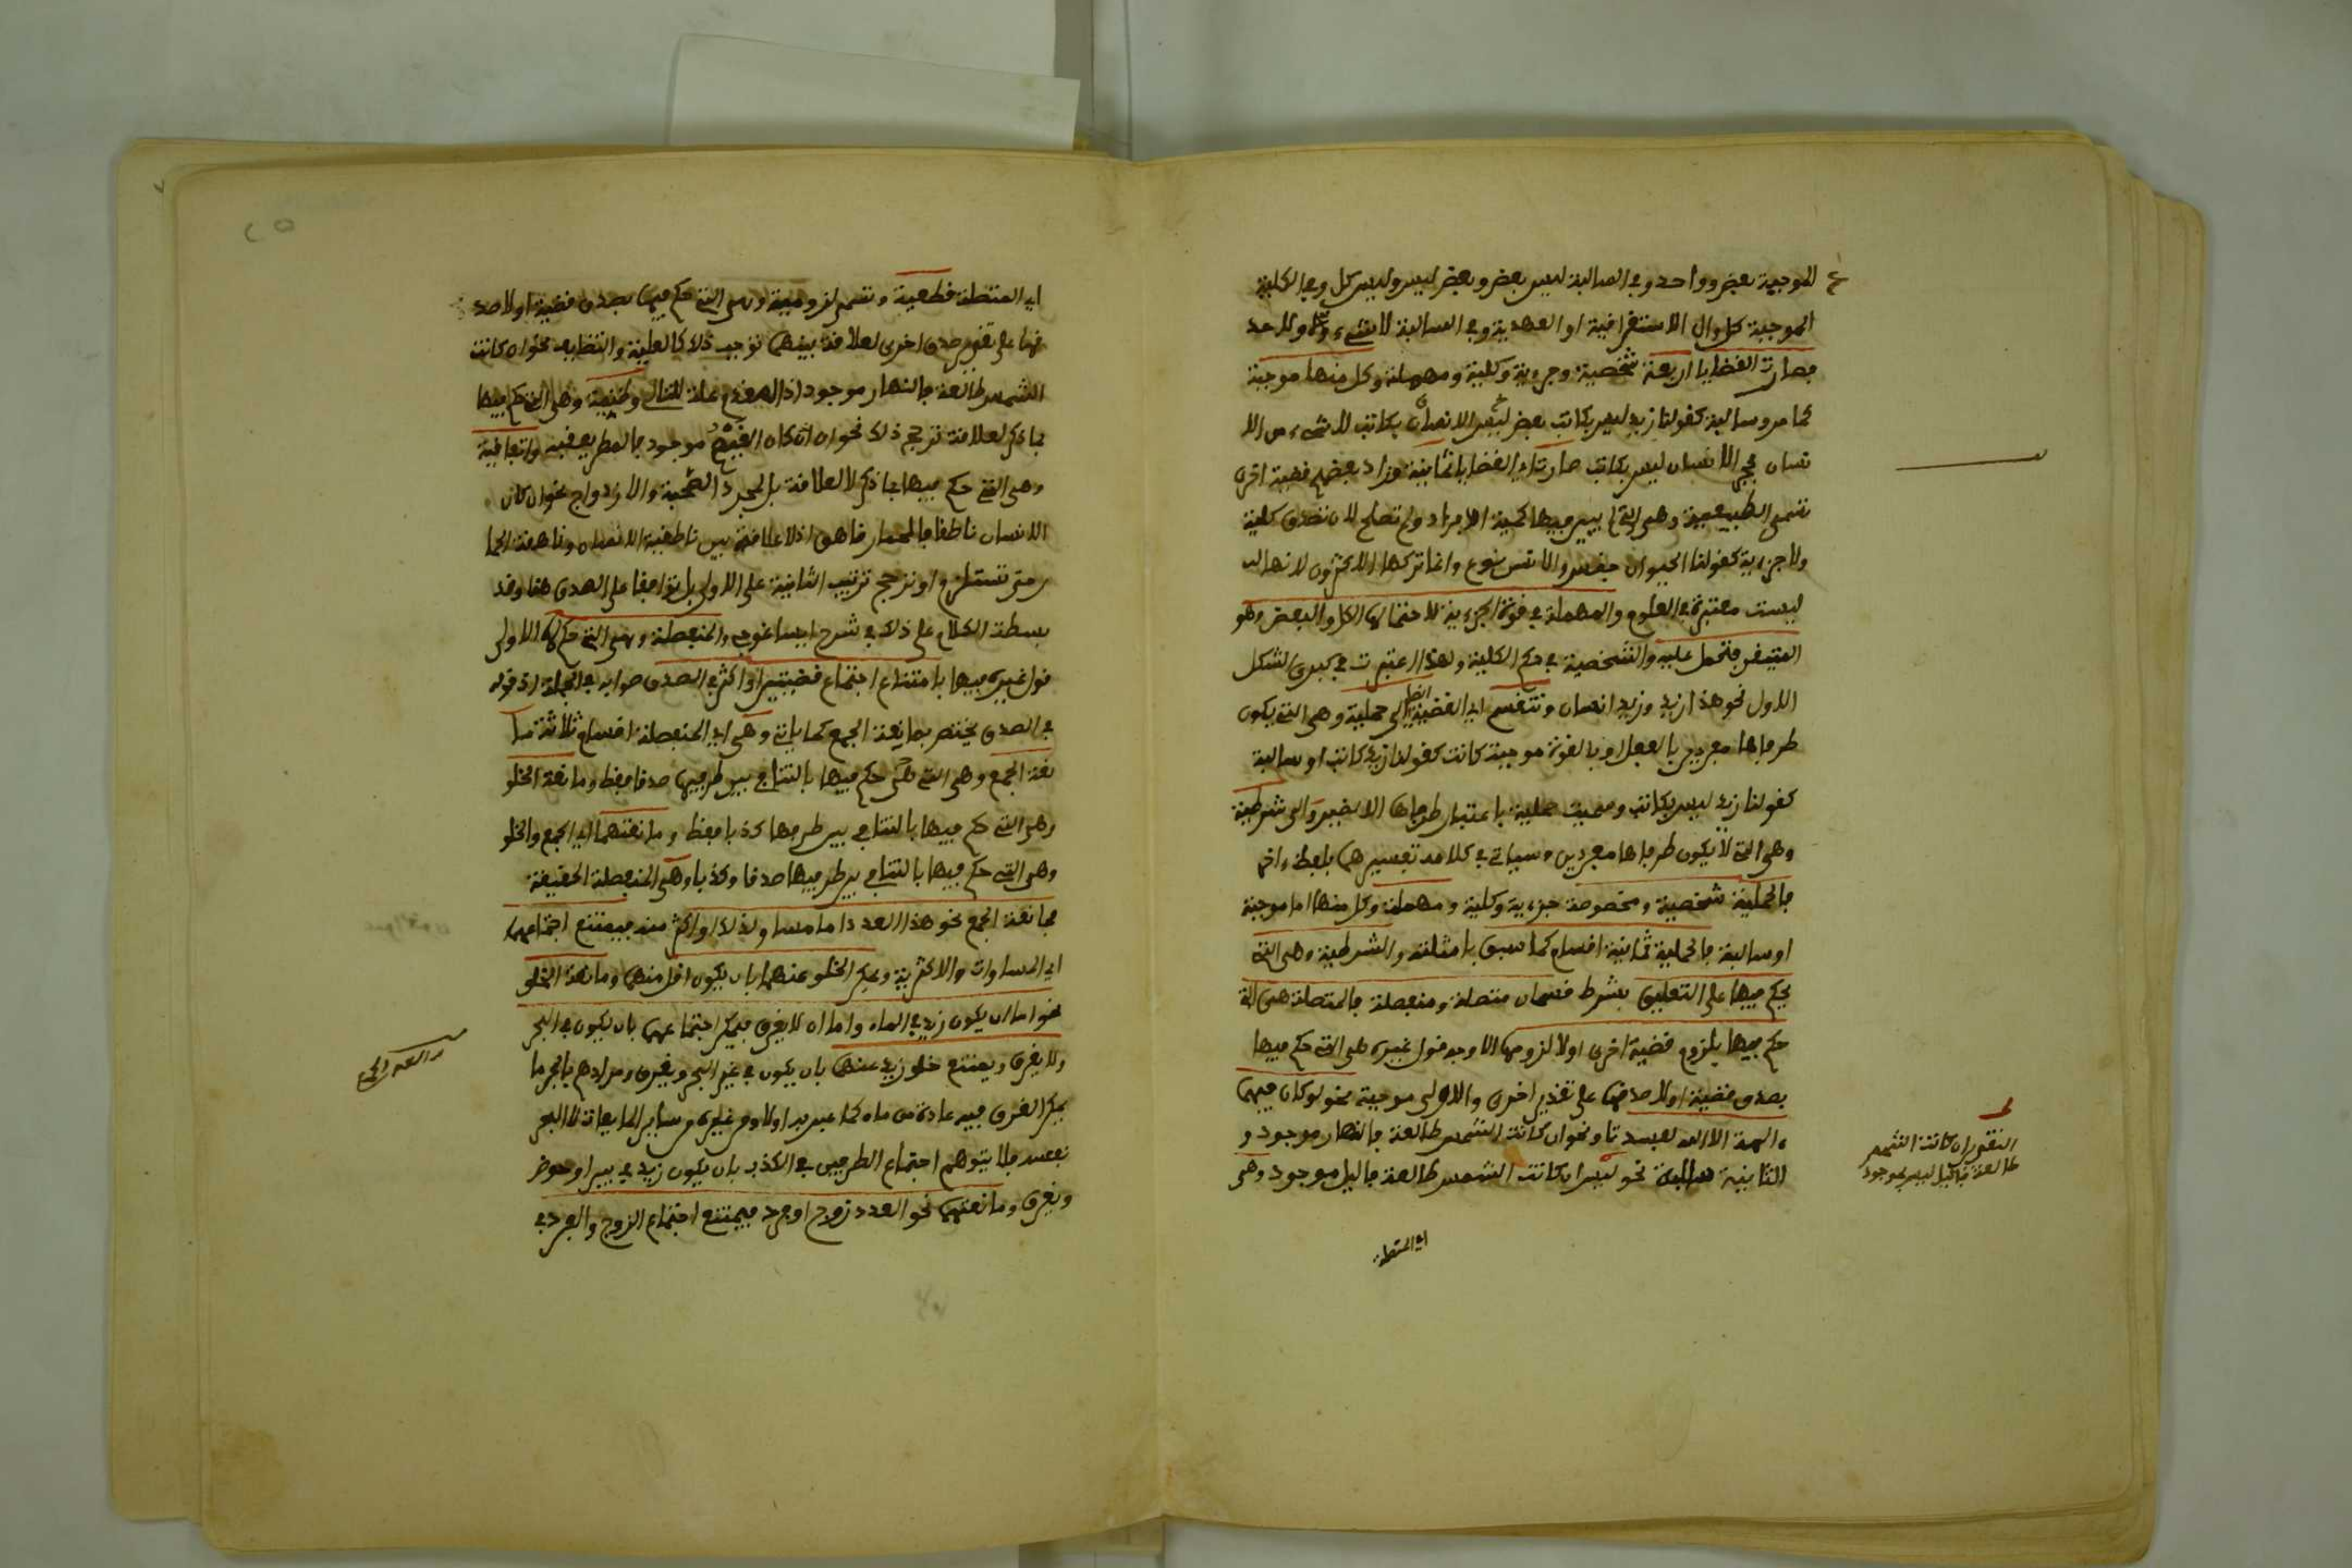 الموجبة بعض وواحد وفي السالبة ليس بعض وبعض ليس وليس كل وفي الكلية
الموجبة كل وال الاستغراقية او العهدية وفي السالبة لا شيء ولا واحد
فصارت القضايا اربعة شخصية وجزءية وكلية ومهملة وكل منها موجبة
كما مر وسالبة كقولنا زيد ليس بكاتب بعض ليس الانسان بكاتب لا شيء من الا
نسان بحجر الانسان ليس بكاتب صارت القضايا ثمانية وزاد بعضهم قضية اخرى
تسمى الطبيعية وهي التي لم يبين فيها كمية الافراد ولم تصلح لان تصدق كلية
ولا جزءية كقولنا الحيوان جنس والانسان نوع وانما تركها الاكثرون لانها
ليست معتبرة في العلوم والمهملة في قوة الجزءية لاحتمالها الكل والبعض وهو
المتيقن فتحمل عليه والشخصية في حكم الكلية ولهذا اعتبرت في كبرى الشكل
الاول نحو هذا زيد وزيد انسان وتنقسم اي القضية ايضا الى حملية وهي التي يكون
طرفاها مفردين بالفعل او بالقوة موجبة كانت كقولنا زيد كاتب او سالبة
كقولنا زيد ليس بكاتب وسميت حملية باعتبار طرفها الاخير والى شرطية
وهي التي لا يكون طرفاها مفردين وسياتي في كلامه تفسيرهما بلفظ ءاخر
فالحملية شخصية ومخصوصة جزءية وكلية ومهملة وكل منها اما موجبة
او سالبة فالحملية ثمانية اقسام كما سبق بامثلته والشرطية وهي التي
يحكم فيها على التعليق بشرط قسمان متصلة ومنفصلة فالمتصلة هي التي
حكم فيها بلزوم قضية اخرى اولا لزومها الاوجه قول غيره هي التي حكم فيها
بصدق قضية اولا صدقها على تقدير اخرى والاولى موجبة نحو لو كان فيهما
ءالهة الا الله لفسدتا ونحو ان كانت الشمس طالعة فالنهار موجود و
الثانية سالبة نحو ليس ان كانت الشمس طالعة فاليل موجود وهي
اي المتصلة
ان كانت الشمس
طالعة فاليل ليس بموجود
اي المتصلة قطعية وتسمى لزومية وهي التي حكم فيها بصدق قضية اولا صد
قها على تقدير صدق اخرى لعلاقة بينهما توجب ذلك كالعلية والتضايف نحو ان كانت
الشمس طالعة فالنهار موجود اذ المقدم علة للتالي وظنية وهي التي حكم فيها
بما ذكر لعلاقة ترجح ذلك نحو ان كان الغيم موجود فالمطر يعقبه واتفاقية
وهي التي حكم فيها بما ذكر لا لعلاقة بل لمجرد الصحبة والازدواج نحو ان كان
الانسان ناطقا فالحمار ناهق اذ لا علاقة بين ناطقية الانسان وناهقية الحما
ر حتى تستلزم او ترجح ترتيب الثانية على الاولى بل توافقا على الصدق هنا وقد
بسطت الكلام على ذلك في شرح ايساغوجي والمنفصلة وهي التي حكم الاولى
قول غيره فيها بامتناع اجتماع قضيتين او اكثر في الصدق صوابه في الجملة اذ قوله
في الصدق يختص بمانعة الجمع كما ياتي وهي اي المنفصلة اقسام ثلاثة ما
نعة الجمع وهي التي حكم فيها بالتنافي بين طرفيها صدقا فقط ومانعة الخلو
وهي التي حكم فيها بالتنافي بين طرفيها كذبا فقط ومانعتهما اي الجمع والخلو
وهي التي حكم فيها بالتنافي بين طرفيها صدقا وكذبا وهي المنفصلة الحقيقة
فمانعة الجمع نحو هذا العدد اما مساو لذلك او اكثر منه فيمتنع اجتماعهما
اي المساوات والاكثرية ويمكن الخلو عنهما بان يكون اقل منهما ومانعة الخلو
نحو اما ان يكون زيد في الماء واما ان لا يغرق فيمكن اجتماعهما بان يكون في البحر
ولا يغرق ويمتنع خلو زيد عنهما بان يكون في غير البحر ويغرق ومرادهم بالبحر ما
يمكن الغرق فيه عادة من ماء كما عبر به اولا ومن غيره من ساير المايعات لا البحر
نفسه فلا يتوهم اجتماع الطرفين في الكذب بان يكون زيد في بير او حوض
ويغرق ومانعتهما نحو العدد زوج او فرد فيمتنع اجتماع الزوج والفرد في